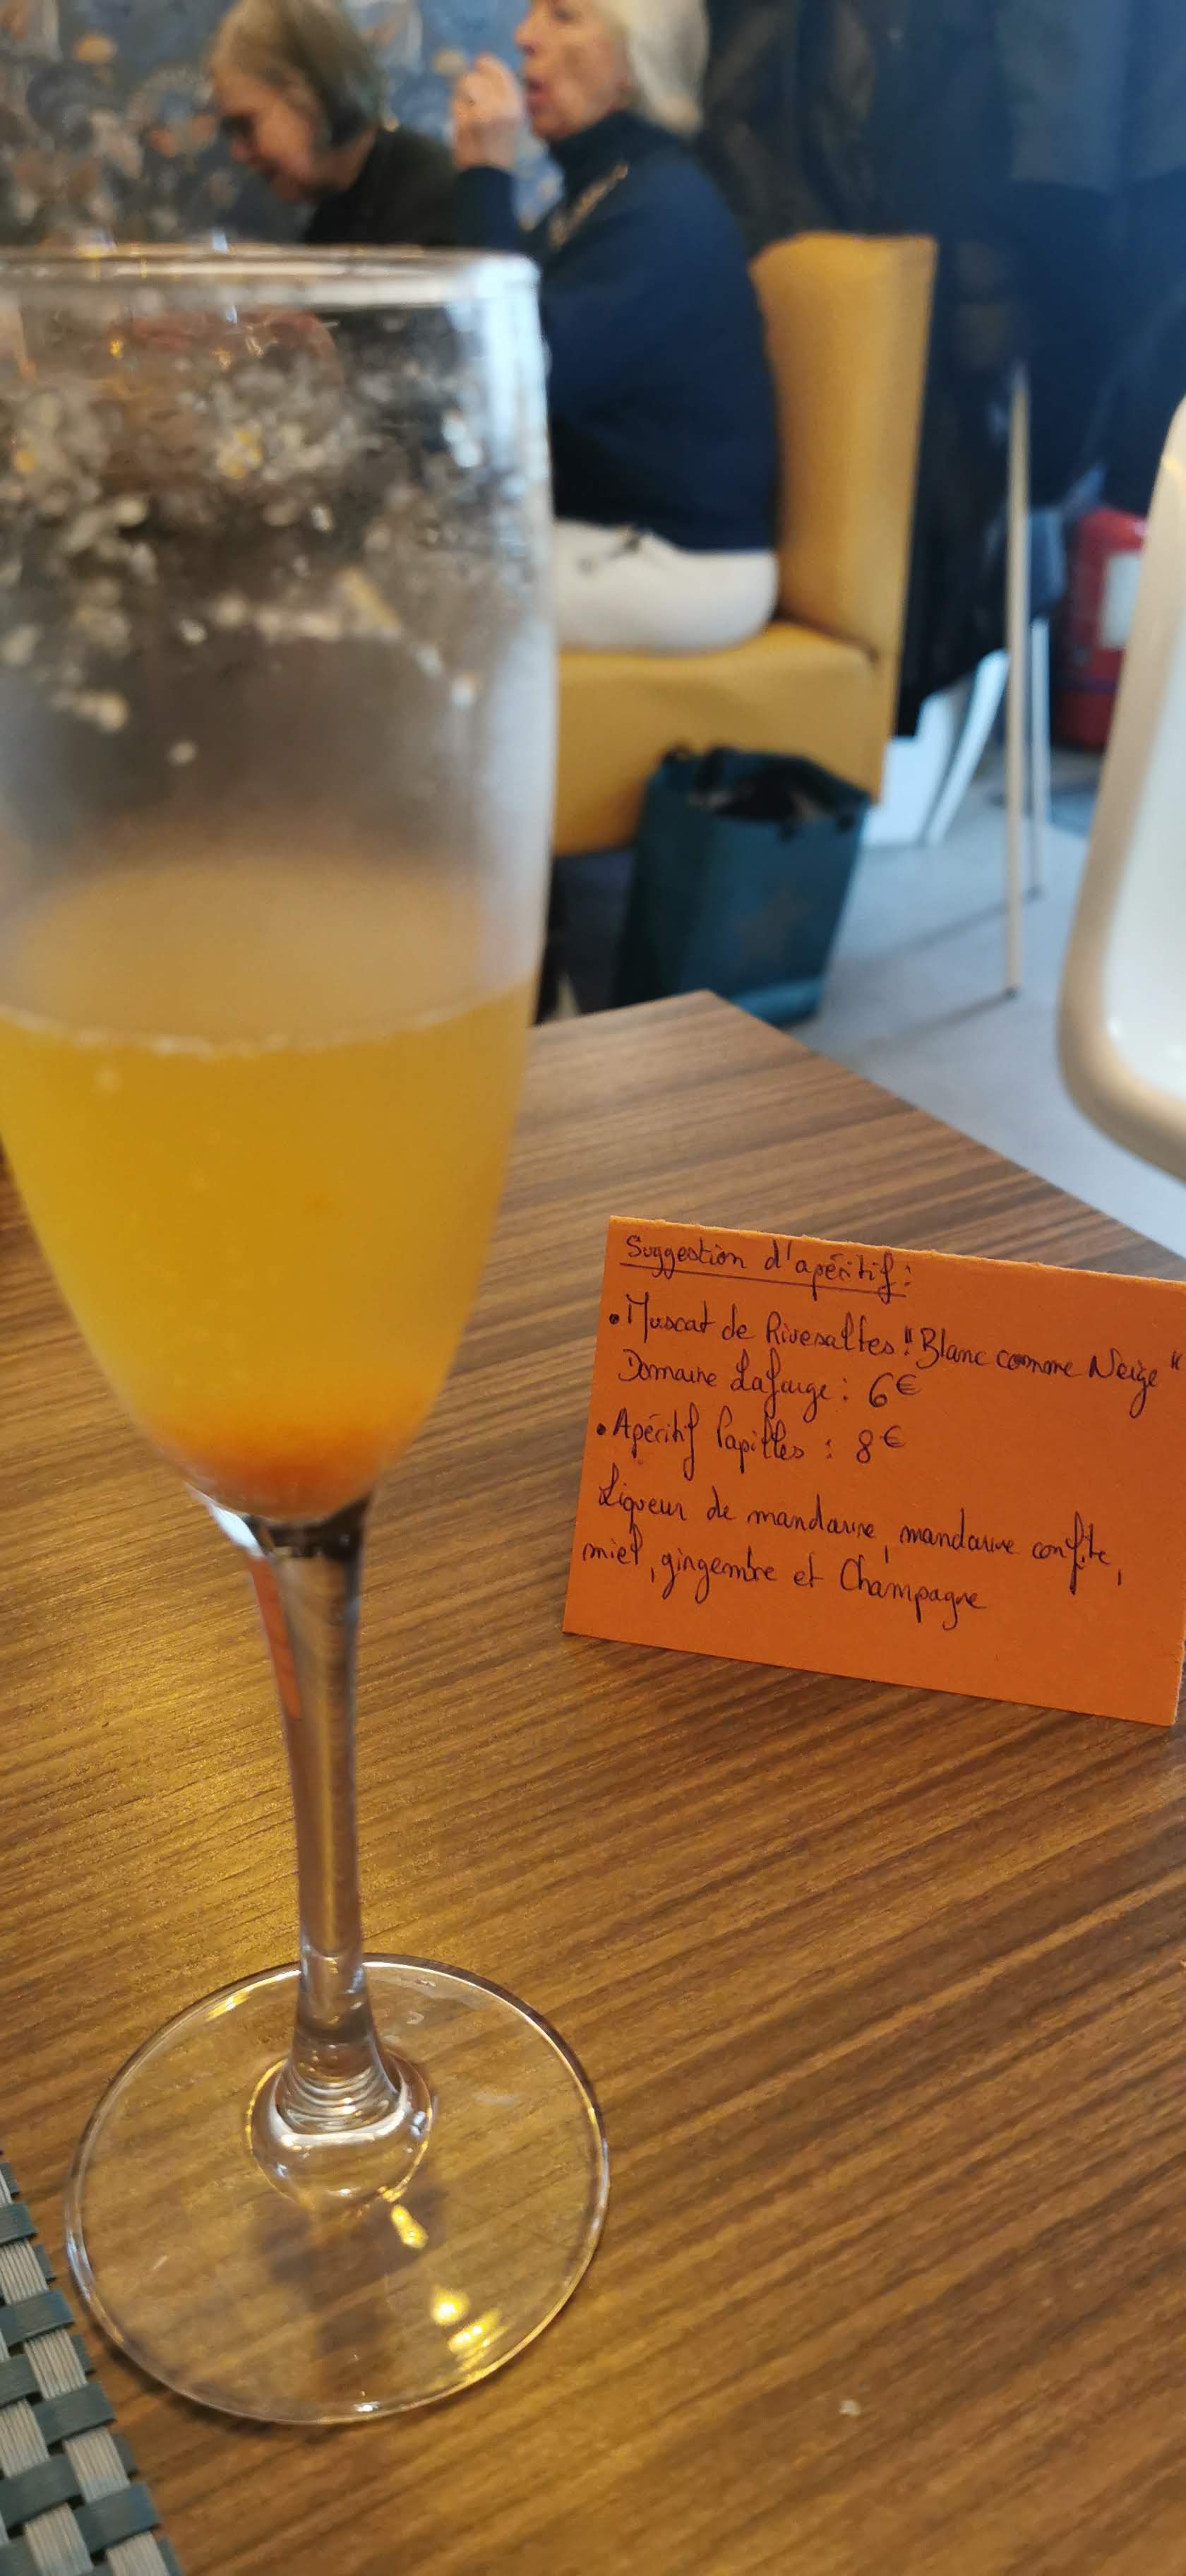 Suggestion d'apéritif :
• Muscat de Rivesaltes : "Blanc comme Neige"
Domaine Lafarge : 6€
• Apéritif Papilles : 8€
Liqueur de mandarine, mandarine confite,
miel, gingembre et Champagne